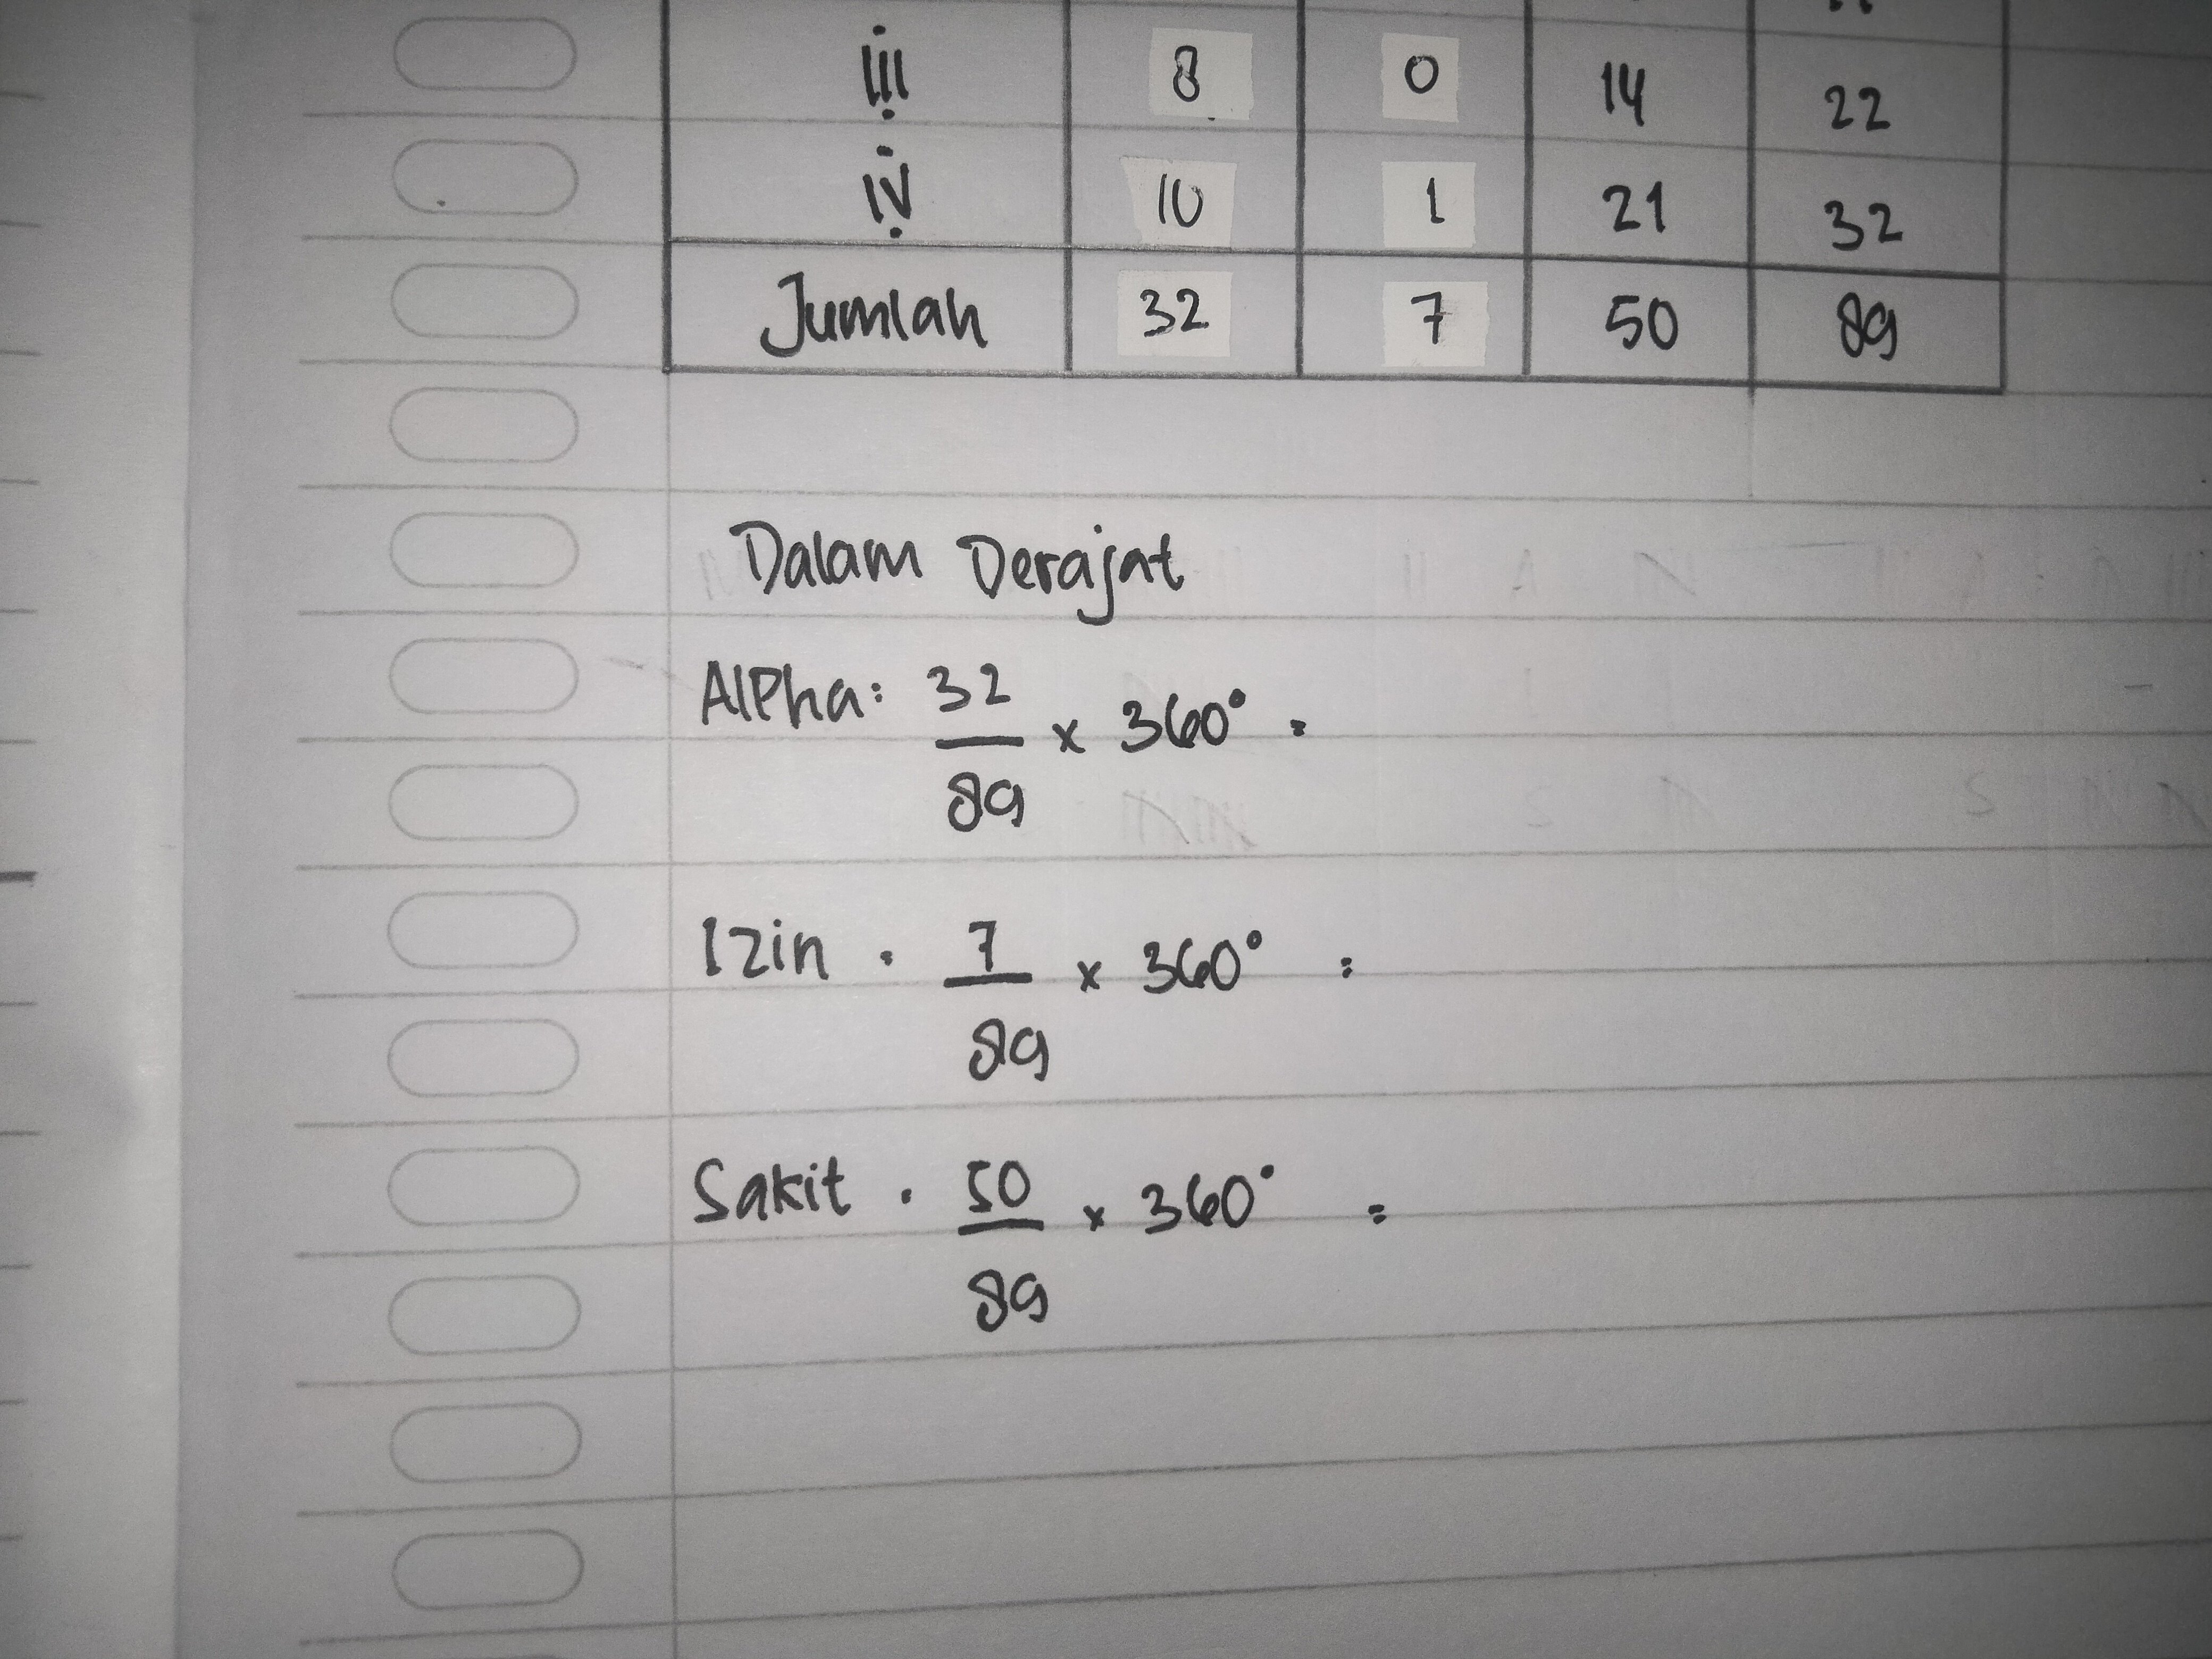 III 8 0 14 22
IV 10 1 21 32
Jumlah 32 7 50 89
Dalam Derajat
Alpha: 32/89 x 360° =
Izin . 7/89 x 360° =
Sakit . 50/89 x 360° =